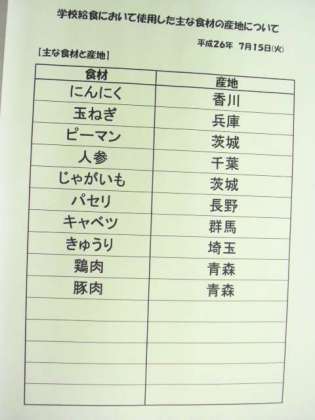 学校給食において使用した主な食材の産地について
平成26年 7月15日(火)
【主な食材と産地】
食材 産地
にんにく 香川
玉ねぎ 兵庫
ピーマン 茨城
人参 千葉
じゃがいも 茨城
パセリ 長野
キャベツ 群馬
きゅうり 埼玉
鶏肉 青森
豚肉 青森